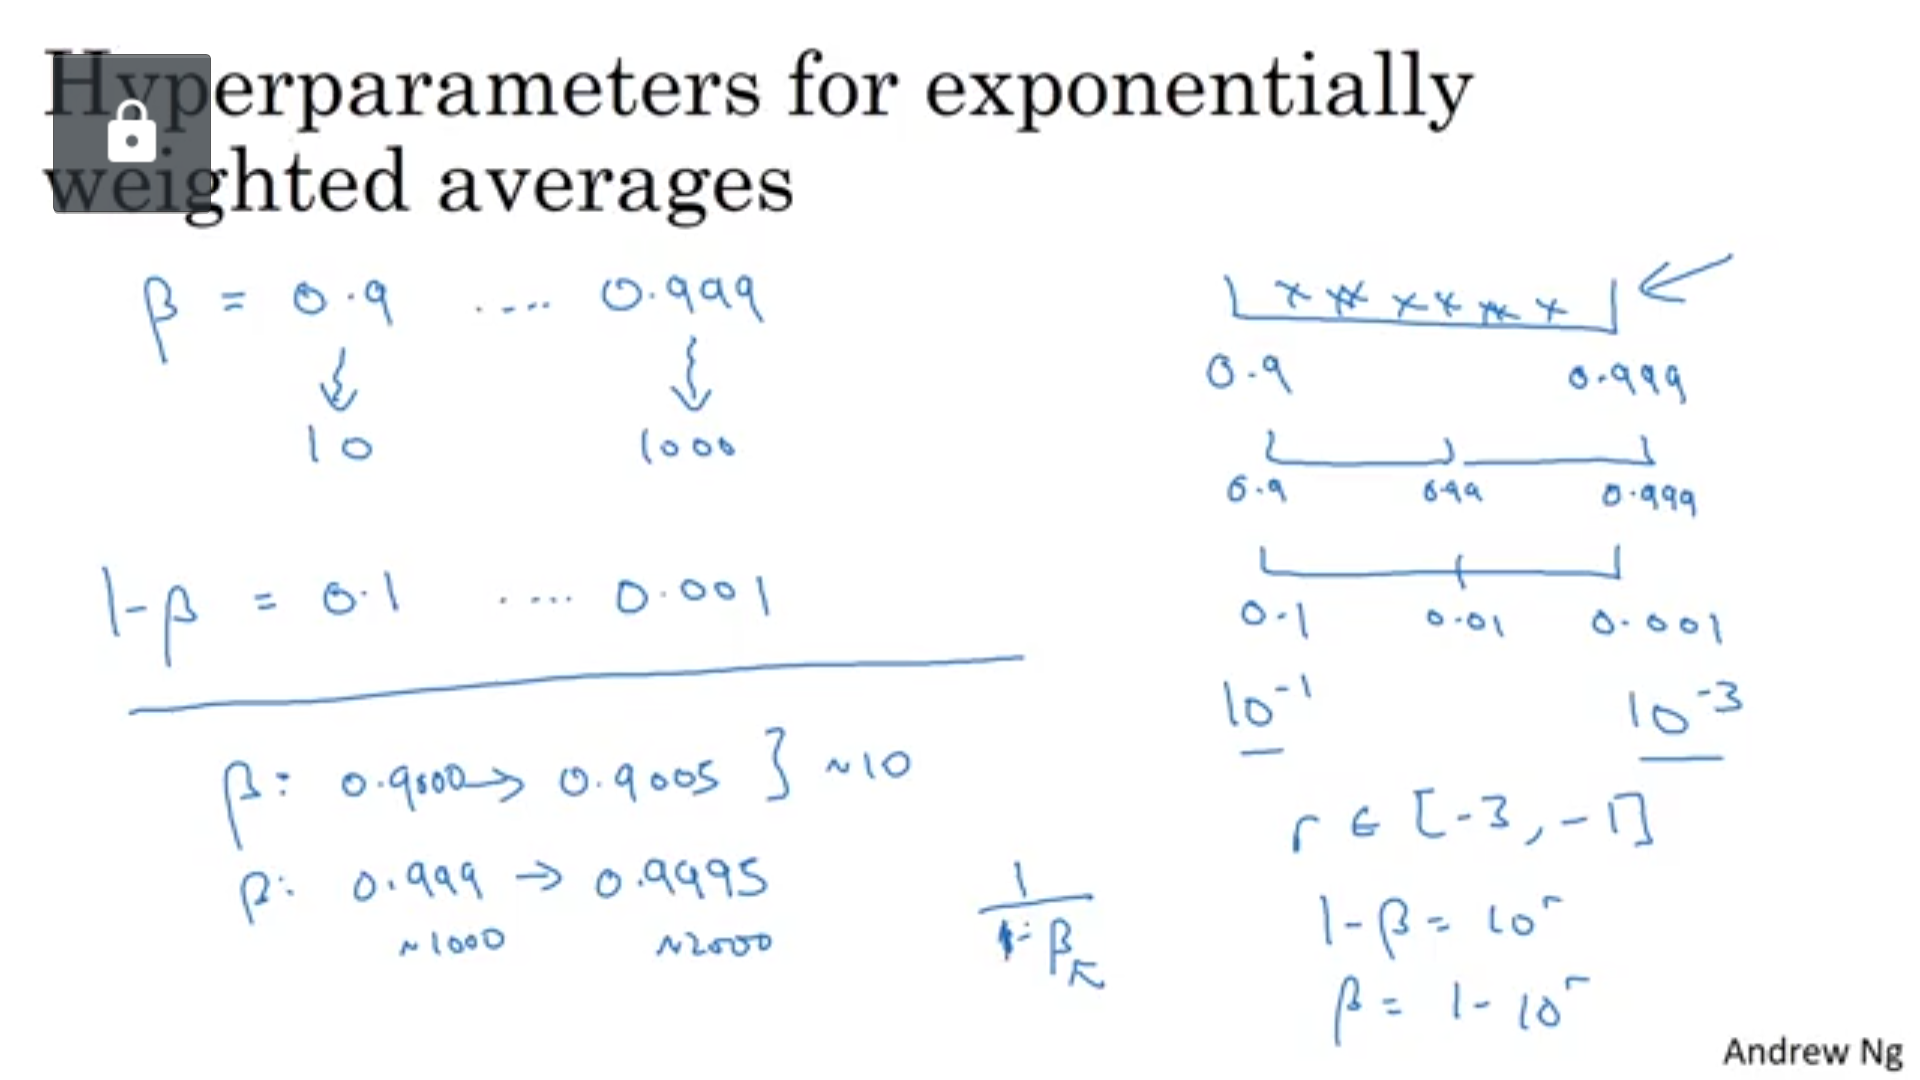 Hyperparameters for exponentially
weighted averages
β = 0.9 .... 0.999
10 1000
1-β = 0.1 .... 0.001
β: 0.9000 → 0.9005 } ~10
β: 0.999 → 0.9995
~1000 ~2000
1
1-β
0.9 0.999
0.9 0.99 0.999
0.1 0.01 0.001
10^-1 10^-3
r ∈ [-3, -1]
1-β = 10^r
β = 1-10^r
Andrew Ng